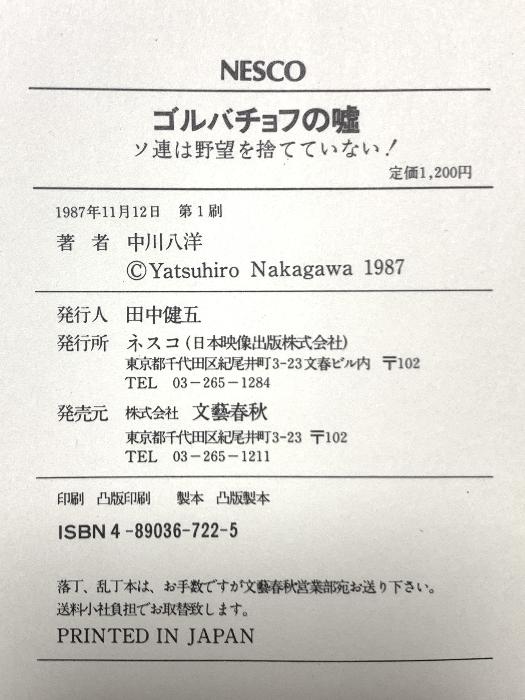 NESCO
ゴルバチョフの嘘
ソ連は野望を捨てていない!
定価1,200円
1987年11月12日 第1刷
著 者 中川八洋
©Yatsuhiro Nakagawa 1987
発行人 田中健五
発行所 ネスコ(日本映像出版株式会社)
東京都千代田区紀尾井町3-23文春ビル内 〒102
TEL 03-265-1284
発売元 株式会社 文藝春秋
東京都千代田区紀尾井町3-23 〒102
TEL 03-265-1211
印刷 凸版印刷 製本 凸版製本
ISBN4-89036-722-5
落丁、乱丁本は、お手数ですが文藝春秋営業部宛お送り下さい。
送料小社負担でお取替致します。
PRINTED IN JAPAN